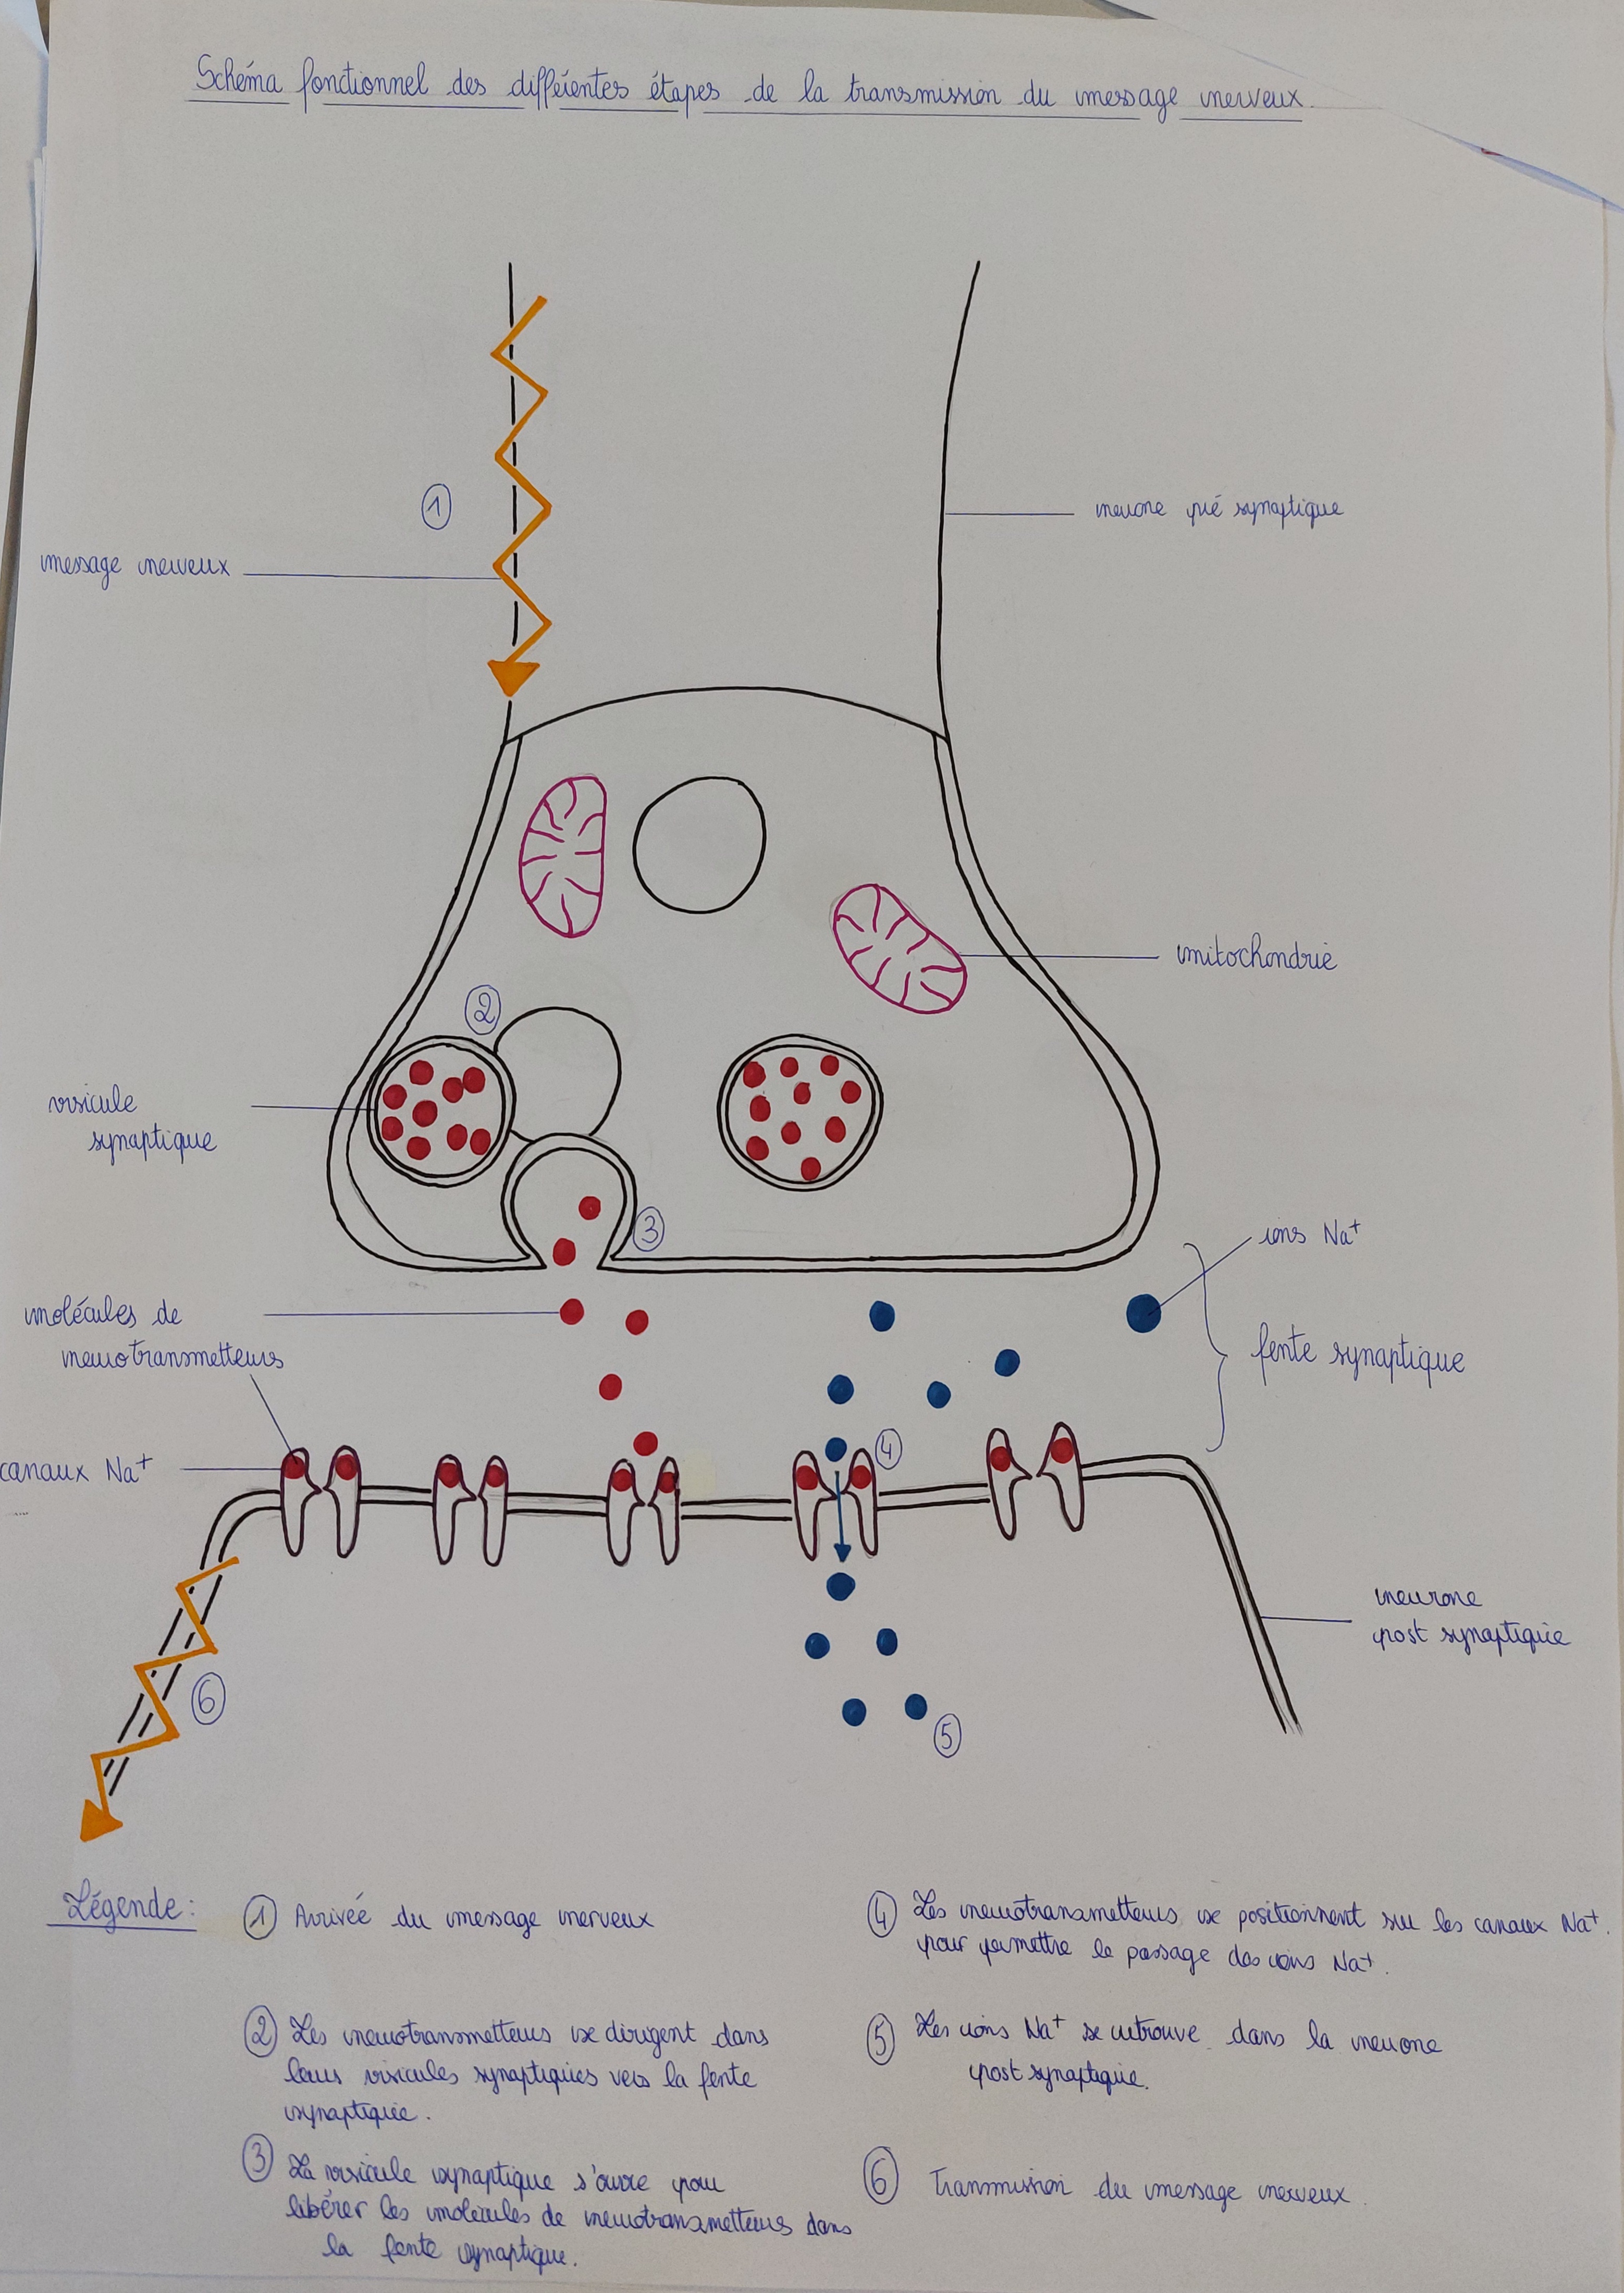 Schéma fonctionnel des différentes étapes de la transmission du message nerveux.
1
neurone pré synaptique
message nerveux
mitochondrie
2
vésicule
synaptique
3
ions Na+
molécules de
neurotransmetteurs
fente synaptique
4
canaux Na+
neurone
post synaptique
6
5
Légende :
1 Arrivée du message nerveux
2 Les neurotransmetteurs se dirigent dans
leurs vésicules synaptiques vers la fente
synaptique.
3 La vésicule synaptique s'ouvre pour
libérer les molécules de neurotransmetteurs dans
la fente synaptique.
4 Les neurotransmetteurs se positionnent sur les canaux Na+.
pour permettre le passage des ions Na+.
5 Les ions Na+ se retrouve dans la neurone
post synaptique.
6 Transmission du message nerveux.